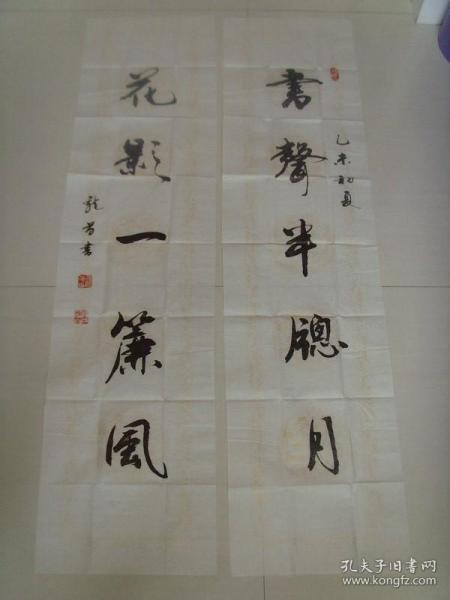 書聲半牕月
乙未初夏
花影一簾風
孔夫子旧书网
www.kongfz.com